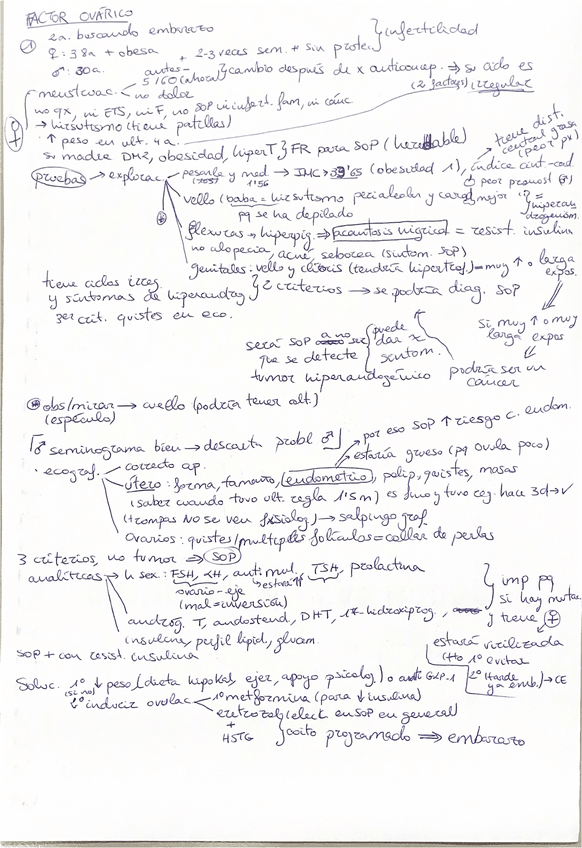 FACTOR OVÁRICO
① 2a. buscando embarazo
♀: 38a + obesa + 2-3 veces sem. + sin protec } infertilidad
♂: 30a.
menstruac. antes- 5/60 (ahora) } cambio después de x anticoncep. ⇒ su ciclo es irregular
no dolor (2 factores)
no qx, ni ETS, ni F, no SOP ni infert. fam, ni cánc
♀ → hirsutismo (tiene patillas)
↑ peso en ult. 4a.
su madre DM2, obesidad, hiperT } FR para SOP (heredable)
pruebas → explorac → pesarla y med → IMC > (obesidad 1), índice cint-cad
1'56
tiene dist. central grasa (peor px)
peor pronost
vello (barba = hirsutismo pq se ha depilado
= hiperandrogenism.
flexuras → hiperpig. ⇒ acantosis nigrical = resist. insulin
no alopecia, acné, seborea (síntom. SOP)
genitales: vello y clítoris (tendría hipertrof.) = muy ↑ o larga expos.
tiene ciclos irreg. y síntomas de hiperandrog } 2 criterios → se podría diag. SOP
3er crit. quistes en eco.
si muy ↑ o muy larga expos
podría ser un cáncer
será SOP a no ser que se detecte tumor hiperandrogénico
puede dar x síntom.
obs/mirar → cuello (podría tener alt.)
(espéculo)
♂ seminograma bien → descarta probl ♂
por eso SOP ↑ riesgo c. endom.
estaría grueso (pq ovula poco)
· ecograf. correcto ap.
útero: forma, tamaño, endometrio, polip, quistes, masas
(saber cuando tuvo ult. regla 1'5m) es fino y tuvo reg. hace 3d → ✓
(trompas NO se ven fisiolog) → salpingograf
ovarios: quistes/multiples folículos = collar de perlas
3 criterios, no tumor ⇒ SOP
analíticas → h sex: FSH, LH, antimul, TSH, prolactina
ovario-eje estará ↑
(mal = inversión)
androg. T, androstend, DHT, 17-hidroxiprog,
insulina, perfil lipid, glucem.
} imp pq si hay mutac y tiene ♀
estará virilizada
tto 1º evitar
2º (tarde ya emb.) → CE
SOP + con resist. insulina
Soluc. 1º ↓ peso (dieta hipokal, ejer, apoyo psicolog) o GLP-1
(si no)
2º inducir ovulac 1º metformina (para ↓ insulina)
(elect en SOP en general)
+
HSTG } coito programado ⇒ embarazo